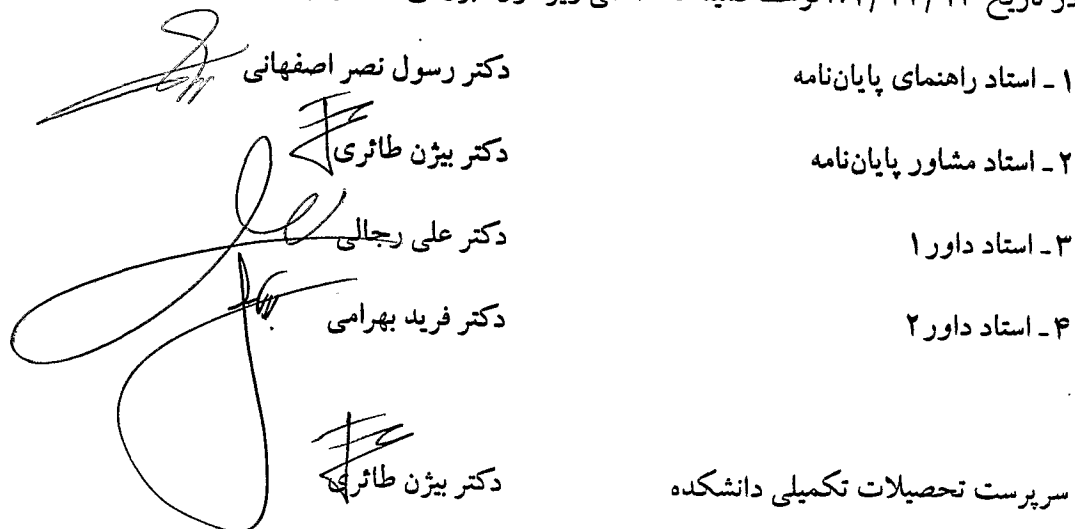 در تاریخ
۱ ـ استاد راهنمای پایان‌نامه دکتر رسول نصر اصفهانی
۲ ـ استاد مشاور پایان‌نامه دکتر بیژن طائری
۳ ـ استاد داور ۱ دکتر علی رجالی
۴ ـ استاد داور ۲ دکتر فرید بهرامی
سرپرست تحصیلات تکمیلی دانشکده دکتر بیژن طائری